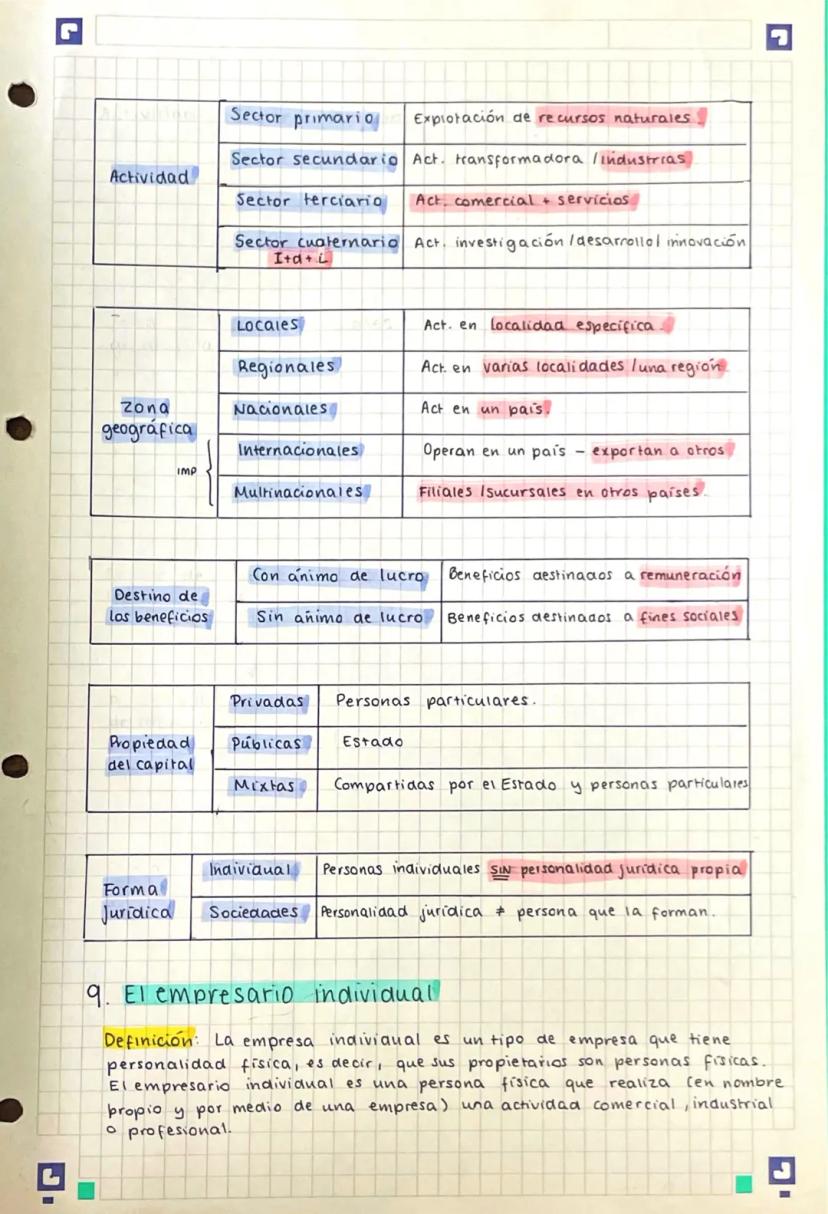 Actividad
Sector primario
Explotación de recursos naturales.
Sector secundario
Act. transformadora / industrias
Sector terciario
Act. comercial + servicios
Sector cuaternario
I+d+i
Act. investigación / desarrollo / innovación
Zona
geográfica
IMP
Locales
Act. en localidad específica.
Regionales
Act. en varias localidades / una región.
Nacionales
Act en un país.
Internacionales
Operan en un país - exportan a otros
Multinacionales
Filiales / sucursales en otros países.
Destino de
los beneficios
Con ánimo de lucro
Beneficios destinados a remuneración
Sin ánimo de lucro
Beneficios destinados a fines sociales
Propiedad
del capital
Privadas
Personas particulares.
Públicas
Estado
Mixtas
Compartidas por el Estado y personas particulares
Forma
Jurídica
Individual
Personas individuales SIN personalidad jurídica propia
Sociedades
Personalidad jurídica ≠ persona que la forman.
9. El empresario individual
Definición: La empresa individual es un tipo de empresa que tiene
personalidad física, es decir, que sus propietarios son personas físicas.
El empresario individual es una persona física que realiza (en nombre
propio y por medio de una empresa) una actividad comercial, industrial
o profesional.